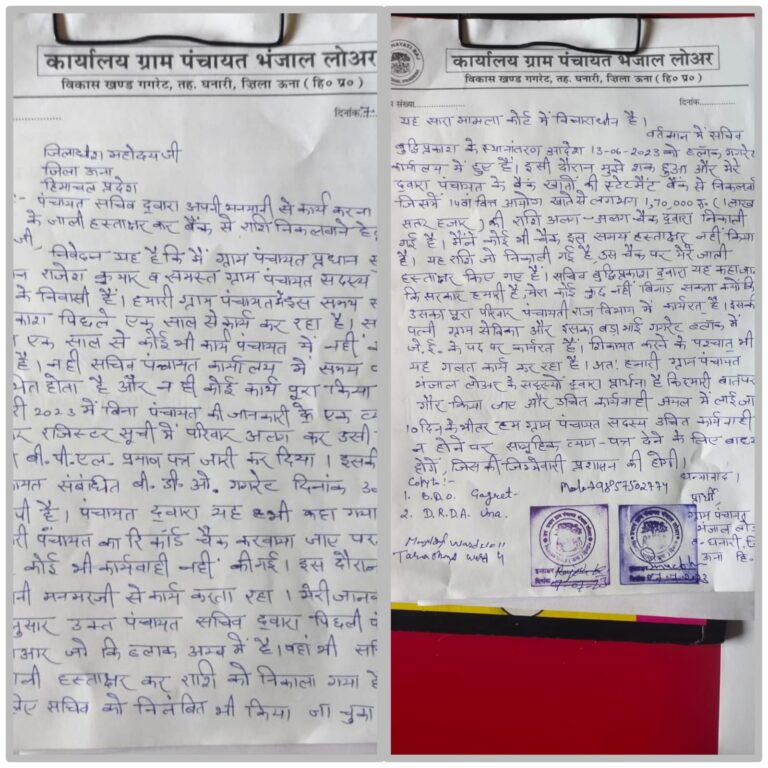 कार्यालय ग्राम पंचायत भंजाल लोअर
विकास खण्ड गगरेट, तह. घनारी, ज़िला ऊना ( हि० प्र० )
दिनांक
जिलाधीश महोदय जी
जिला ऊना
हिमाचल प्रदेश
पंचायत सचिव द्वारा अपनी मनमानी से कार्य करना
के जाली हस्ताक्षर कर बैंक से राशि निकलवाने हे
जी
निवेदन यह है कि में ग्राम पंचायत प्रधान
राजेश कुमार व समस्त ग्राम पंचायत सदस्य
के निवासी हैं। हमारी ग्राम पंचायत में इस समय
काश पिछले एक साल से कार्य कर रहा है।
एक साल से कोई भी कार्य पंचायत में नहीं
है। नही सचिव पंचायत कार्यालय में समय
होता है और न ही कोई कार्य पूरा किया
री 2023 में बिना पंचायत की जानकारी के एक
रजिस्टर सूची में परिवार अलग कर उसी
बी.पी.एल. प्रमाण पत्र जारी कर दिया। इसकी
संबंधित बी. डी. ओ. गगरेट दिनांक
पी है। पंचायत द्वारा यह भी कहा गया
री पंचायत का रिकॉर्ड चैक करवाया जाए पर
कोई भी कार्यवाही नहीं की गई। इस दौरान
नी मनमरजी से कार्य करता रहा। मेरी जान
नुसार उक्त पंचायत सचिव द्वारा पिछली
आर जो कि ब्लाक अम्ब में है। वहां भी
हस्ताक्षर कर राशि को निकाला गया है
सचिव को निलंबित भी किया जा चुका
कार्यालय ग्राम पंचायत भंजाल लोअर
विकास खण्ड गगरेट, तह. घनारी, ज़िला ऊना ( हि० प्र० )
संख्या
दिनांक
यह सारा मामला कोर्ट में विचाराधीन है।
वर्तमान में सचिव
बुद्धिप्रकाश के स्थानांतरण आदेश 13-06-2023 को ब्लॉक गगरेट
कार्यालय में हुए हैं। इसी दौरान मुझे शक हुआ और मेरे
द्वारा पंचायत के बैंक खातों की स्टेटमैंट बैंक से निकलवा
जिसमें 14वां वित्त आयोग खाते से लगभग 1,70,000 रु. (1 लाख
सतर हजार) की राशि अलग-अलग चैक द्वारा निकाली
गई है। मैंने कोई भी चैक इस समय हस्ताक्षर नहीं किया
है। यह राशि जो निकाली गई है उस चैक पर मेरे जाली
हस्ताक्षर किए गए है। सचिव बुद्धिप्रकाश द्वारा यह कहा
कि सरकार हमारी है, मेरा कोई कुछ नहीं बिगाड़ सकता क्योंकि
उसका पूरा परिवार पंचायती राज विभाग में कार्यरत है। इसकी
पत्नी ग्राम सेविका और इसका बड़ा भाई गगरेट ब्लाक में
जे.ई. के पद पर कार्यरत है। शिकायत करने के पश्चात् भी
यह गलत कार्य कर रहा है। अतः हमारी ग्राम पंचायत
भंजाल लोअर के सदस्यों द्वारा प्रार्थना है कि हमारी बात पर
गौर किया जाए और उचित कार्यवाही अमल में लाई जा
10 दिन के भीतर हम ग्राम पंचायत सदस्य उचित कार्यवाही
न होने पर सामूहिक त्याग-पत्र देने के लिए बाध्य
होंगे, जिसकी जिम्मेवारी प्रशासन की होगी।
धन्यवाद।
Copy:-
1. B.D.O. Gagret
2. D.R.D.A. Una.
प्रार्थी
ग्राम पंचायत
भंजाल लो
घनारी, जि
ऊना हि.
ward 4
हस्ताक्षर
दिनांक